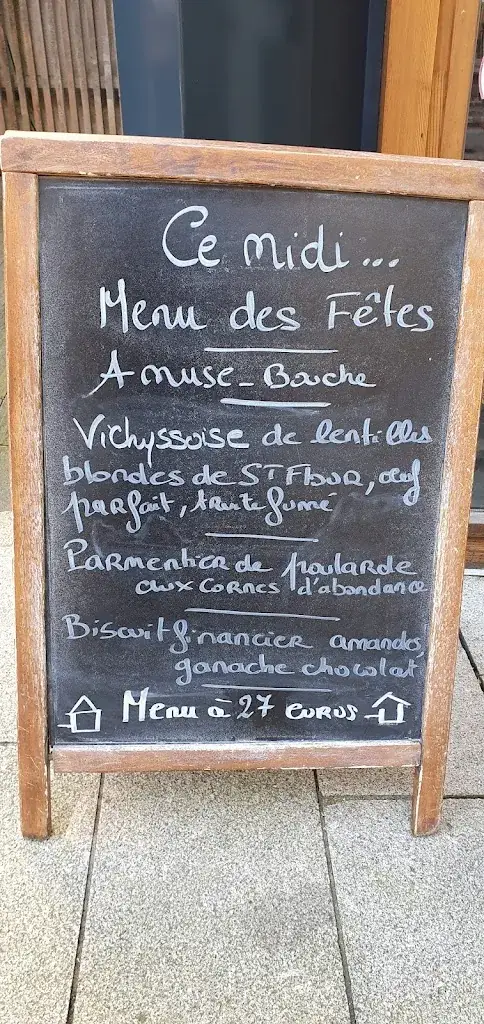 Ce midi...
Menu des Fêtes
Amuse-Bouche
Vichyssoise de lentilles
blondes de ST Flour, œuf
parfait, truite fumé
Parmentier de poularde
aux cornes d'abondance
Biscuit financier amandes,
ganache chocolat
Menu à 27 euros